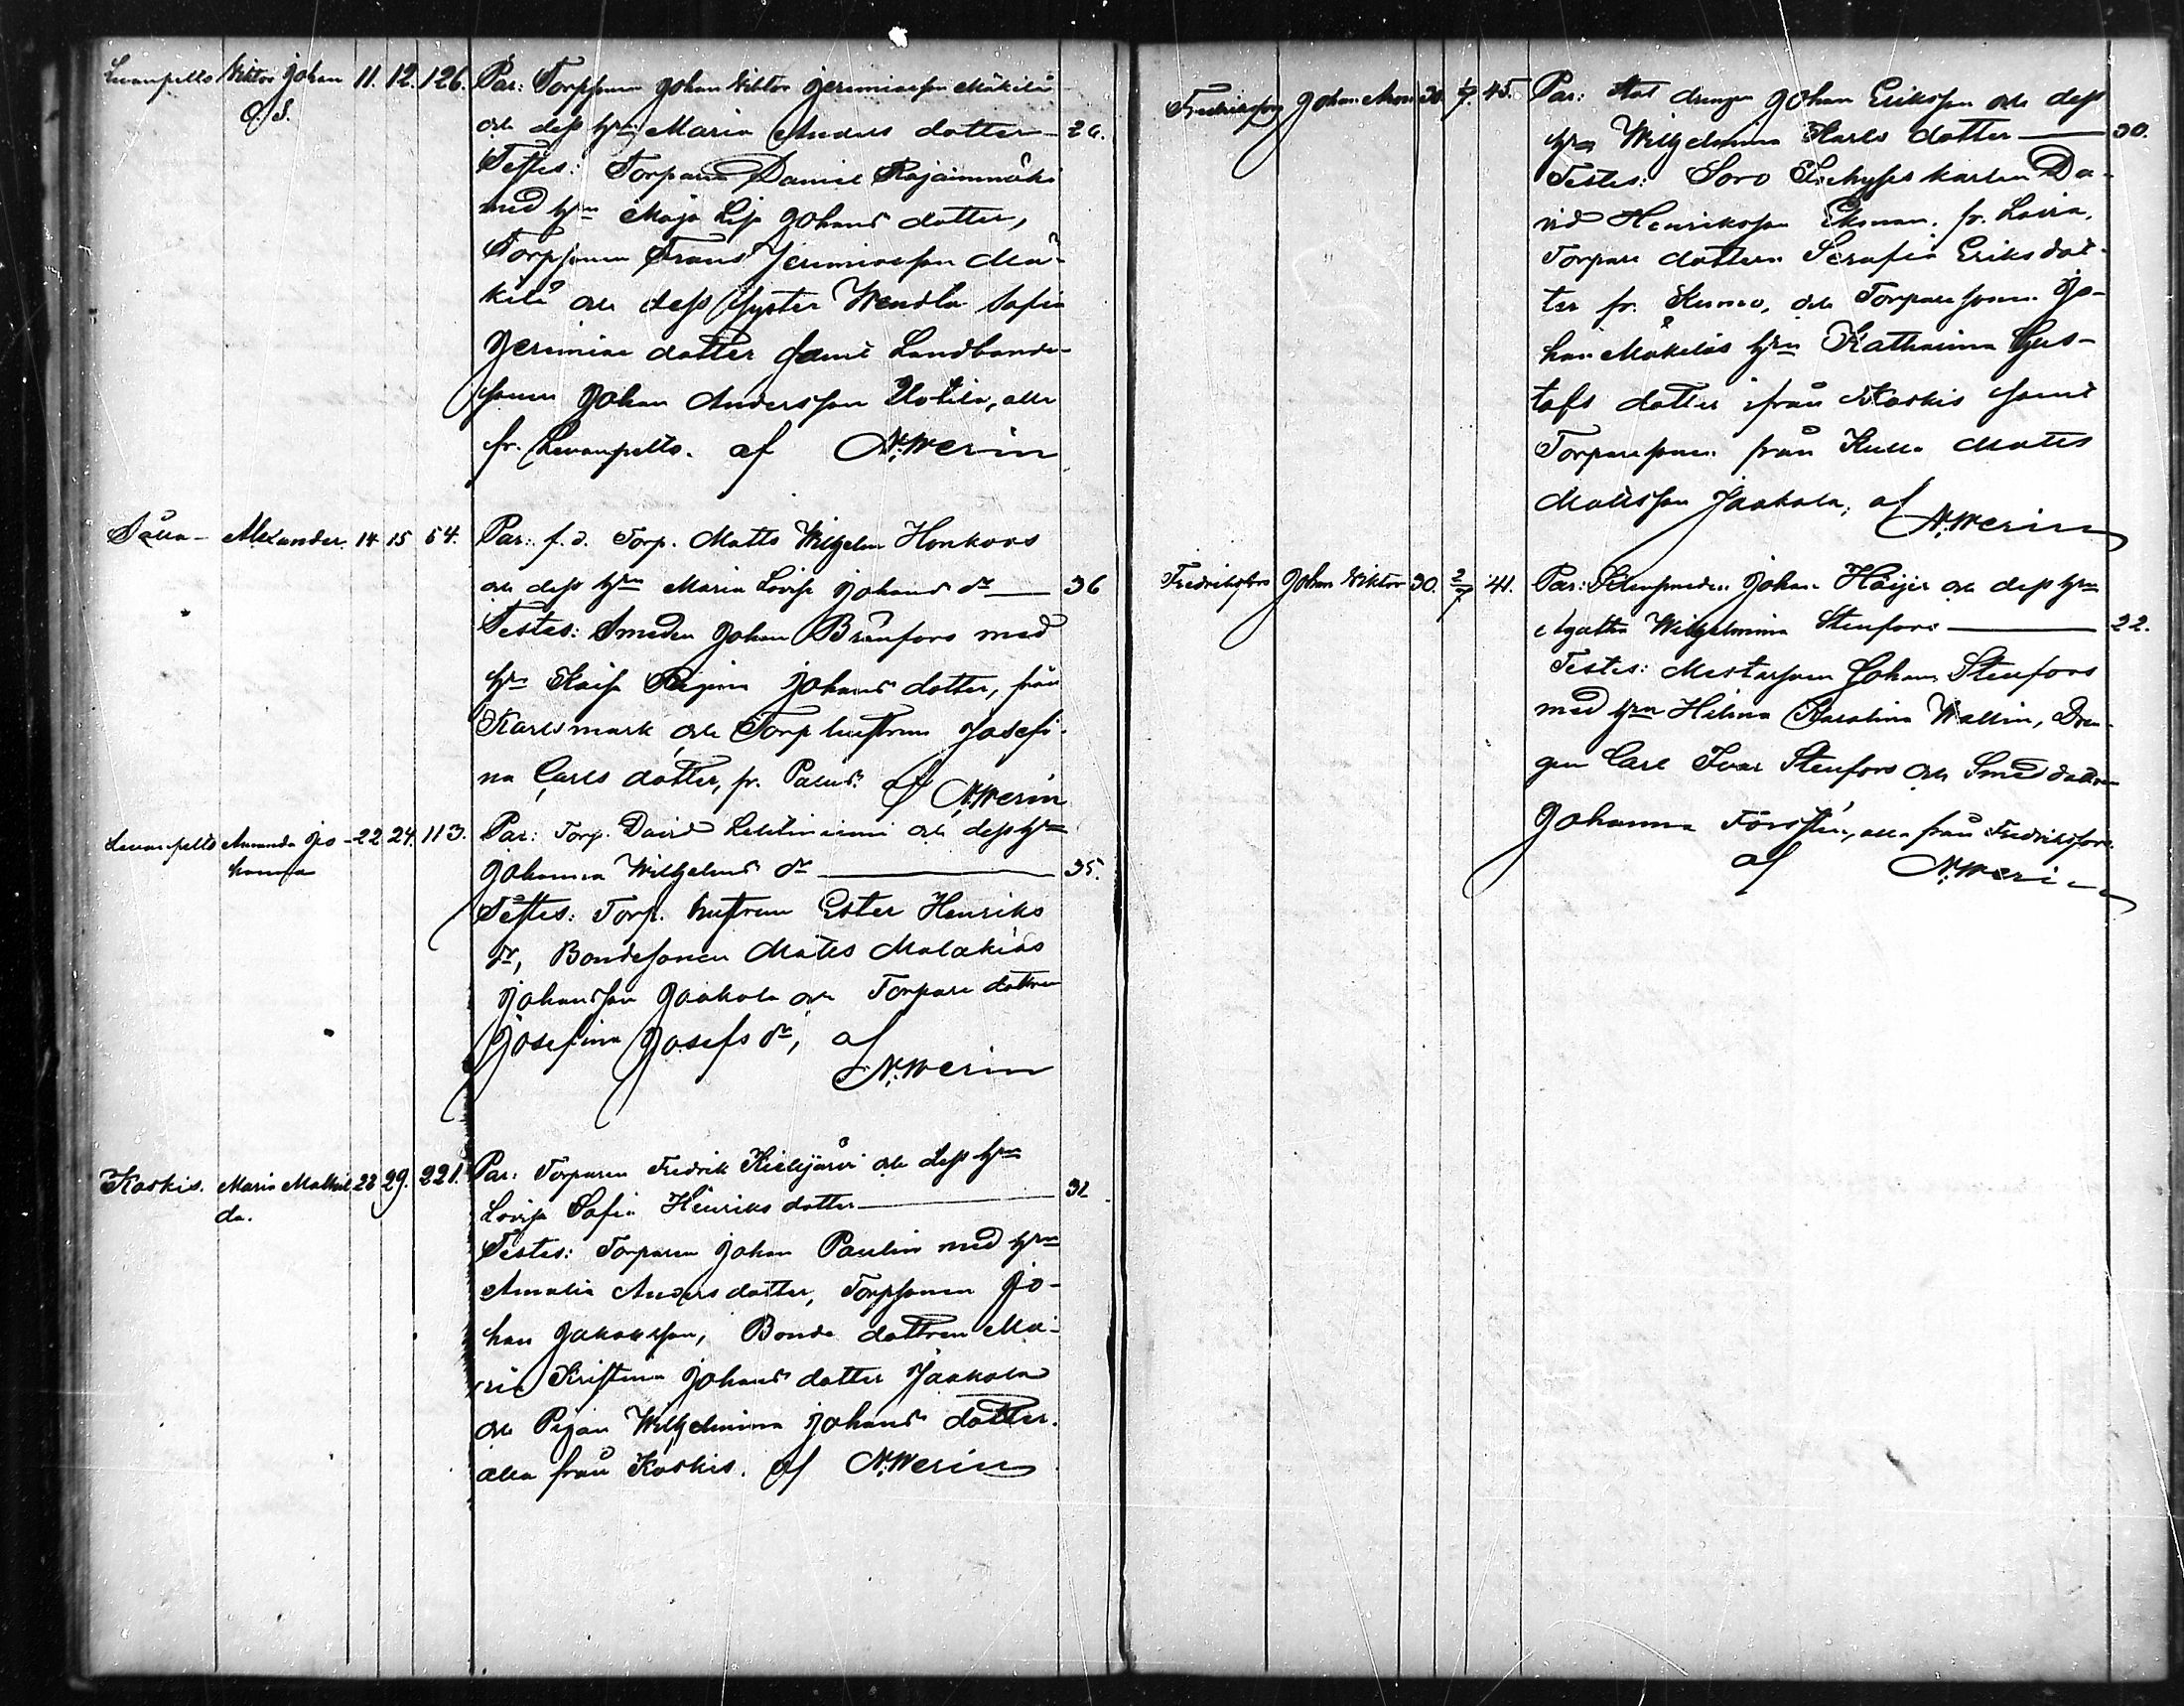 Levanpelto Viktor Johan 11. 12. 126. Par: Torpsonen Johan Viktor Jeremiasson Mäkilä
O. S. och dess h:u Maria Anders dotter — 26.
Testes: Torparen Daniel Rajainmäki
med h:u Maja Lisa Johans dotter,
Torpsonen Frans Jeremiasson Mä-
kilä och dess syster Wendla Sofia
Jeremiae dotter samt Landbonde-
sonen Johan Andersson Uotila, alla
fr. Levanpelto. af N. Merin
Alexander. 14 15 54. Par: f. d. Torp. Matts Wilhelm Honkoos
och dess h:u Maria Lovisa Johans dr — 36
Testes: Smeden Johan Brunfors med
h:u Kaisa Regina Johans dotter, från
Karlsmark och Torp hustrun Josefi-
na Carls dotter, fr. Palus. af N. Merin
Levanpelto Amanda Jo- 22 24. 113. Par: Torp. David Lehtiniemi och dess h:u
hanna Johanna Wilhelms dr — 35.
Testes: Torp. hustrun Ester Henriks
dr, Bondesonen Matts Malakias
Johansson Jaakola och Torpare dottren
Josefina Josefs dr, af
N. Merin
Koskis. Maria Mathil- 28 29. 221. Par: Torparen Fredrik Kielijärvi och dess h:u
da. Lovisa Sofia Henriks dotter — 32
Testes: Torparen Johan Paulin med h:u
Amalia Anders dotter, Torpsonen Jo-
han Jakobsson, Bonde dottren Ma-
ria Kristina Johans dotter Jaakola
och Pigan Wilhelmina Johans dotter.
alla från Koskis. af N. Merin
Fredriksfors Johan 30. 45. Par: Stat drengen Johan Eriksson och dess
h:u Wilhelmina Karls dotter — 30.
Testes: Da-
vid Henriksson Ekman, fr.
Torpare dottern Serafia Eriks dot-
ter fr. Kumo, och Torparesonen Jo-
han Mäkiläs h:u Katharina Gus-
tafs dotter ifrån Koskis samt
Torparesonen från Kulla Matts
Mattsson Jaakola, af
N. Merin
Fredriksfors Johan Viktor 30. 2/7 41. Par: Johan Höijer och dess h:u
Agatha Wilhelmina Stenfors — 22.
Testes: Johan Stenfors
med h:u Hilma Karolina Wallin, Dren-
gen Carl Ivar Stenfors och Smeddottren
Johanna Forstén, alla från Fredriksfors.
af N. Merin